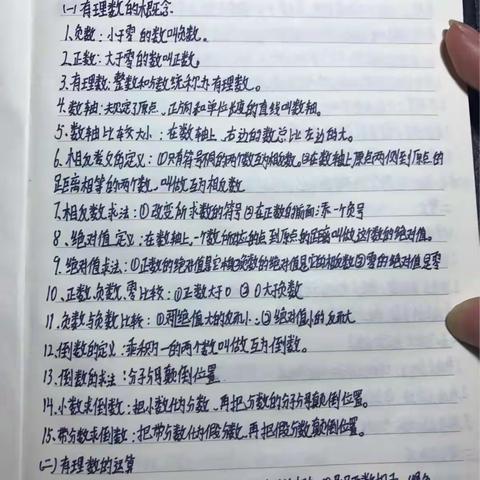 (一)有理数的概念
1.负数：小于零的数叫负数。
2.正数：大于零的数叫正数。
3.有理数：整数和分数统称为有理数。
4.数轴：规定了原点、正方向和单位长度的直线叫数轴。
5.数轴比较大小：在数轴上，右边的数总比左边的大。
6.相反数的定义：①只有符号不同的两个数互为相反数。②在数轴上原点两侧到原点的
距离相等的两个数，叫做互为相反数
7.相反数求法：①改变所求数的符号②在正数的前面添一个负号
8、绝对值定义：在数轴上，一个数所对应的点到原点的距离叫做这个数的绝对值。
9.绝对值求法：①正数的绝对值是它本身②负数的绝对值是它的相反数③零的绝对值是零
10、正数，负数，零比较：①正数大于0 ②0大于负数
11.负数与负数比较：①绝对值大的反而小；②绝对值小的反而大
12.倒数的定义：乘积为一的两个数叫做互为倒数。
13.倒数的求法：分子分母颠倒位置
14.小数求倒数：把小数化为分数，再把分数的分子分母颠倒位置。
15.带分数求倒数：把带分数化为假分数，再把假分数颠倒位置。
(二)有理数的运算